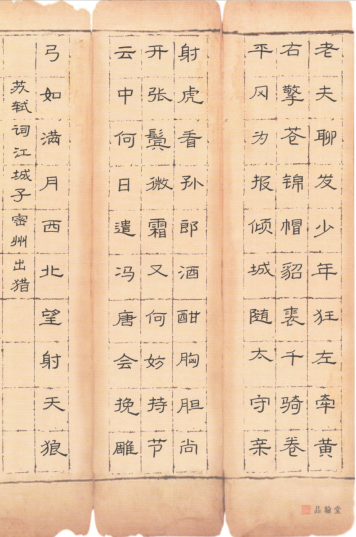 老夫聊发少年狂左牵黄
右擎苍锦帽貂裘千骑卷
平冈为报倾城随太守亲
射虎看孙郎酒酣胸胆尚
开张鬓微霜又何妨持节
云中何日遣冯唐会挽雕
弓如满月西北望射天狼
苏轼词江城子密州出猎
品翰堂